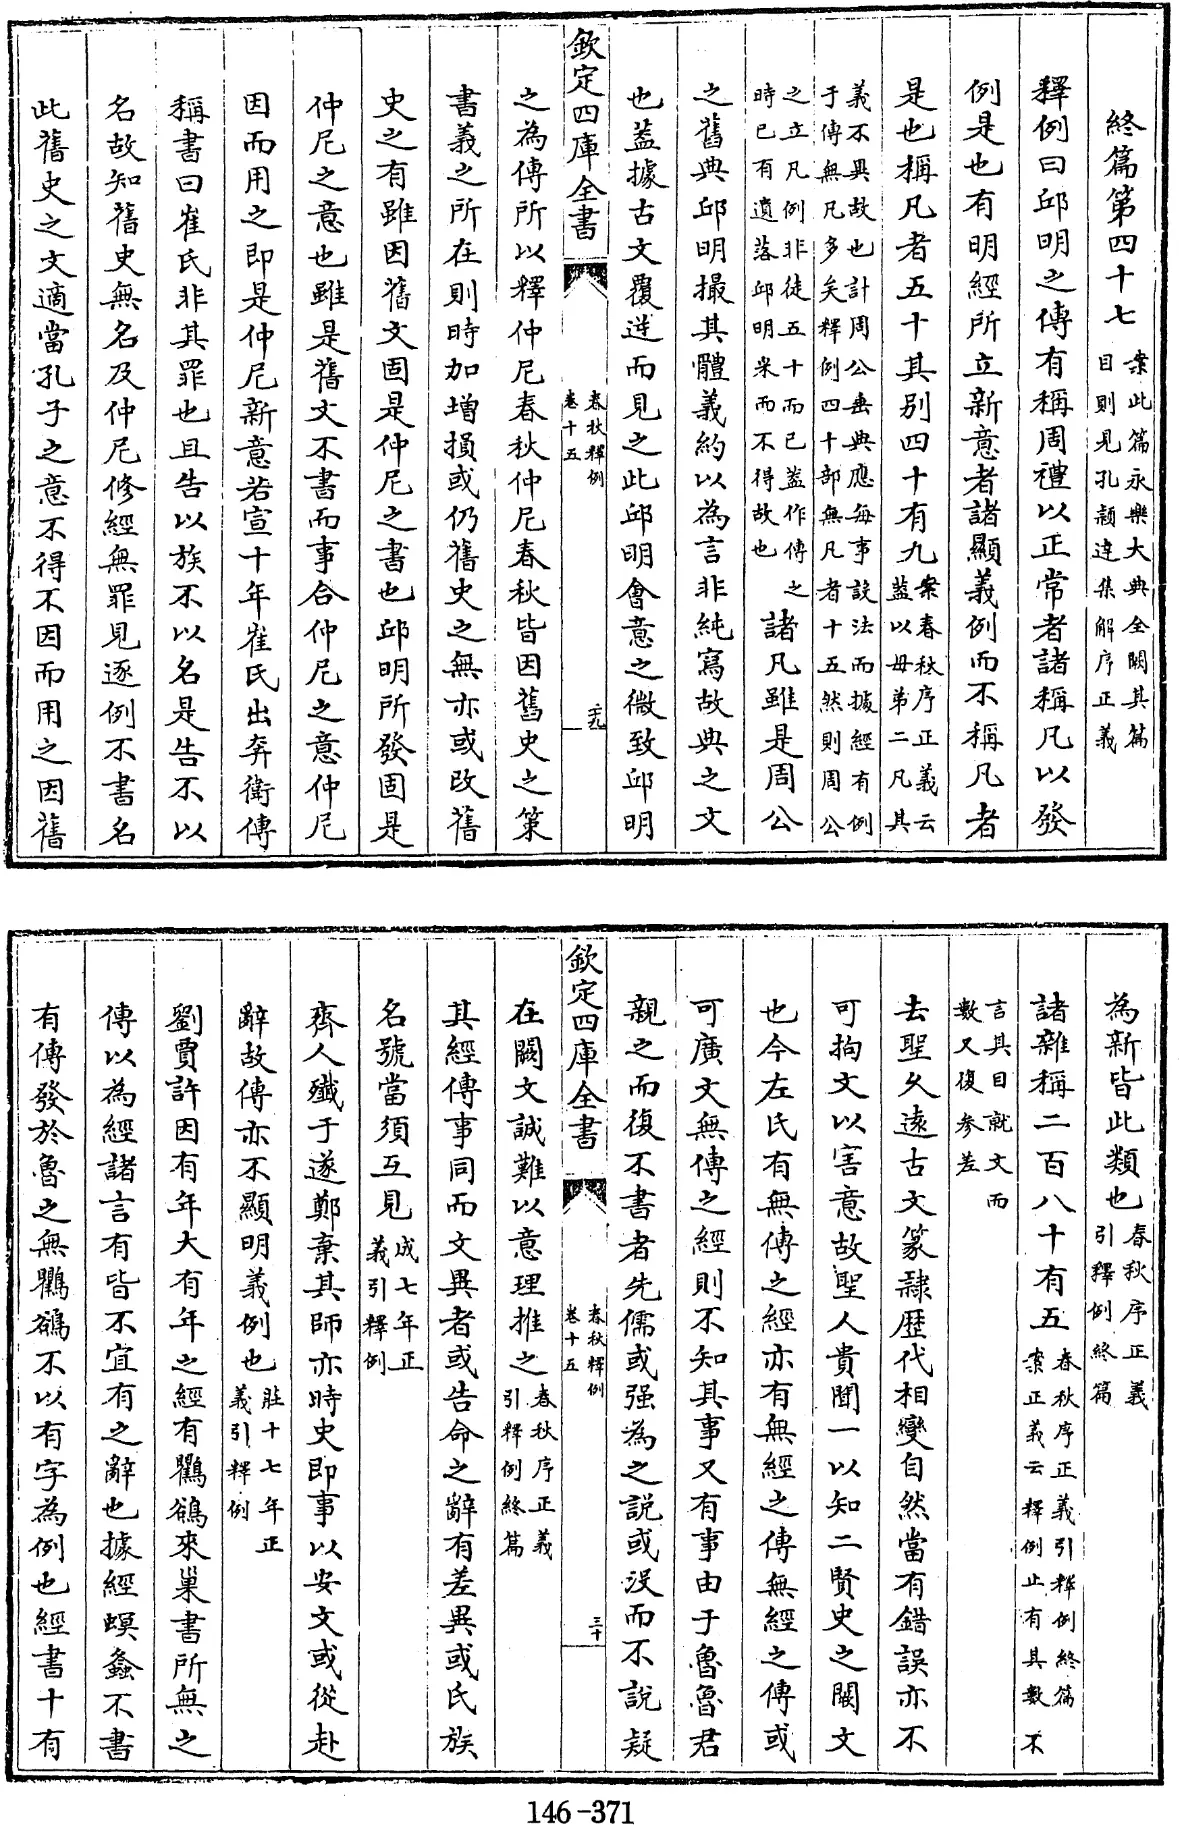 終篇第四十七案此篇永樂大典全闕其篇目則見孔穎達集解序正義
釋例曰邱明之傳有稱周禮以正常者諸稱凡以發
例是也有明經所立新意者諸顯義例而不稱凡者
是也稱凡者五十其别四十有九案春秋序正義云蓋以母弟二凡其
義不異故也計周公垂典應每事設法而據經有例于傳無凡多矣釋例四十部無凡者十五然則周公
之立凡例非徒五十而已蓋作傳之時已有遺落邱明采而不得故也諸凡雖是周公
之舊典邱明撮其體義約以為言非純寫故典之文
也蓋據古文覆逆而見之此邱明會意之微致邱明
欽定四庫全書
春秋釋例
卷十五
二九
之為傳所以釋仲尼春秋仲尼春秋皆因舊史之策
書義之所在則時加增損或仍舊史之無亦或改舊
史之有雖因舊文固是仲尼之書也邱明所發固是
仲尼之意也雖是舊文不書而事合仲尼之意仲尼
因而用之即是仲尼新意若宣十年崔氏出奔衛傳
稱書曰崔氏非其罪也且告以族不以名是告不以
名故知舊史無名及仲尼修經無罪見逐例不書名
此舊史之文適當孔子之意不得不因而用之因舊
為新皆此類也春秋序正義引釋例終篇
諸雜稱二百八十有五春秋序正義引釋例終篇案正義云釋例止有其數不
言其目就文而數又復參差
去聖久遠古文篆隸歷代相變自然當有錯誤亦不
可拘文以害意故聖人貴聞一以知二賢史之闕文
也今左氏有無傳之經亦有無經之傳無經之傳或
可廣文無傳之經則不知其事又有事由于魯魯君
親之而復不書者先儒或强為之説或没而不說疑
欽定四庫全書
春秋釋例
卷十五
三十
在闕文誠難以意理推之春秋序正義引釋例終篇
其經傳事同而文異者或告命之辭有差異或氏族
名號當須互見成七年正義引釋例
齊人殲于遂鄭棄其師亦時史即事以安文或從赴
辭故傳亦不顯明義例也莊十七年正義引釋例
劉賈許因有年大有年之經有鸜鵒來巢書所無之
傳以為經諸言有皆不宜有之辭也據經螟螽不書
有傳發於魯之無鸜鵒不以有字為例也經書十有
146-371